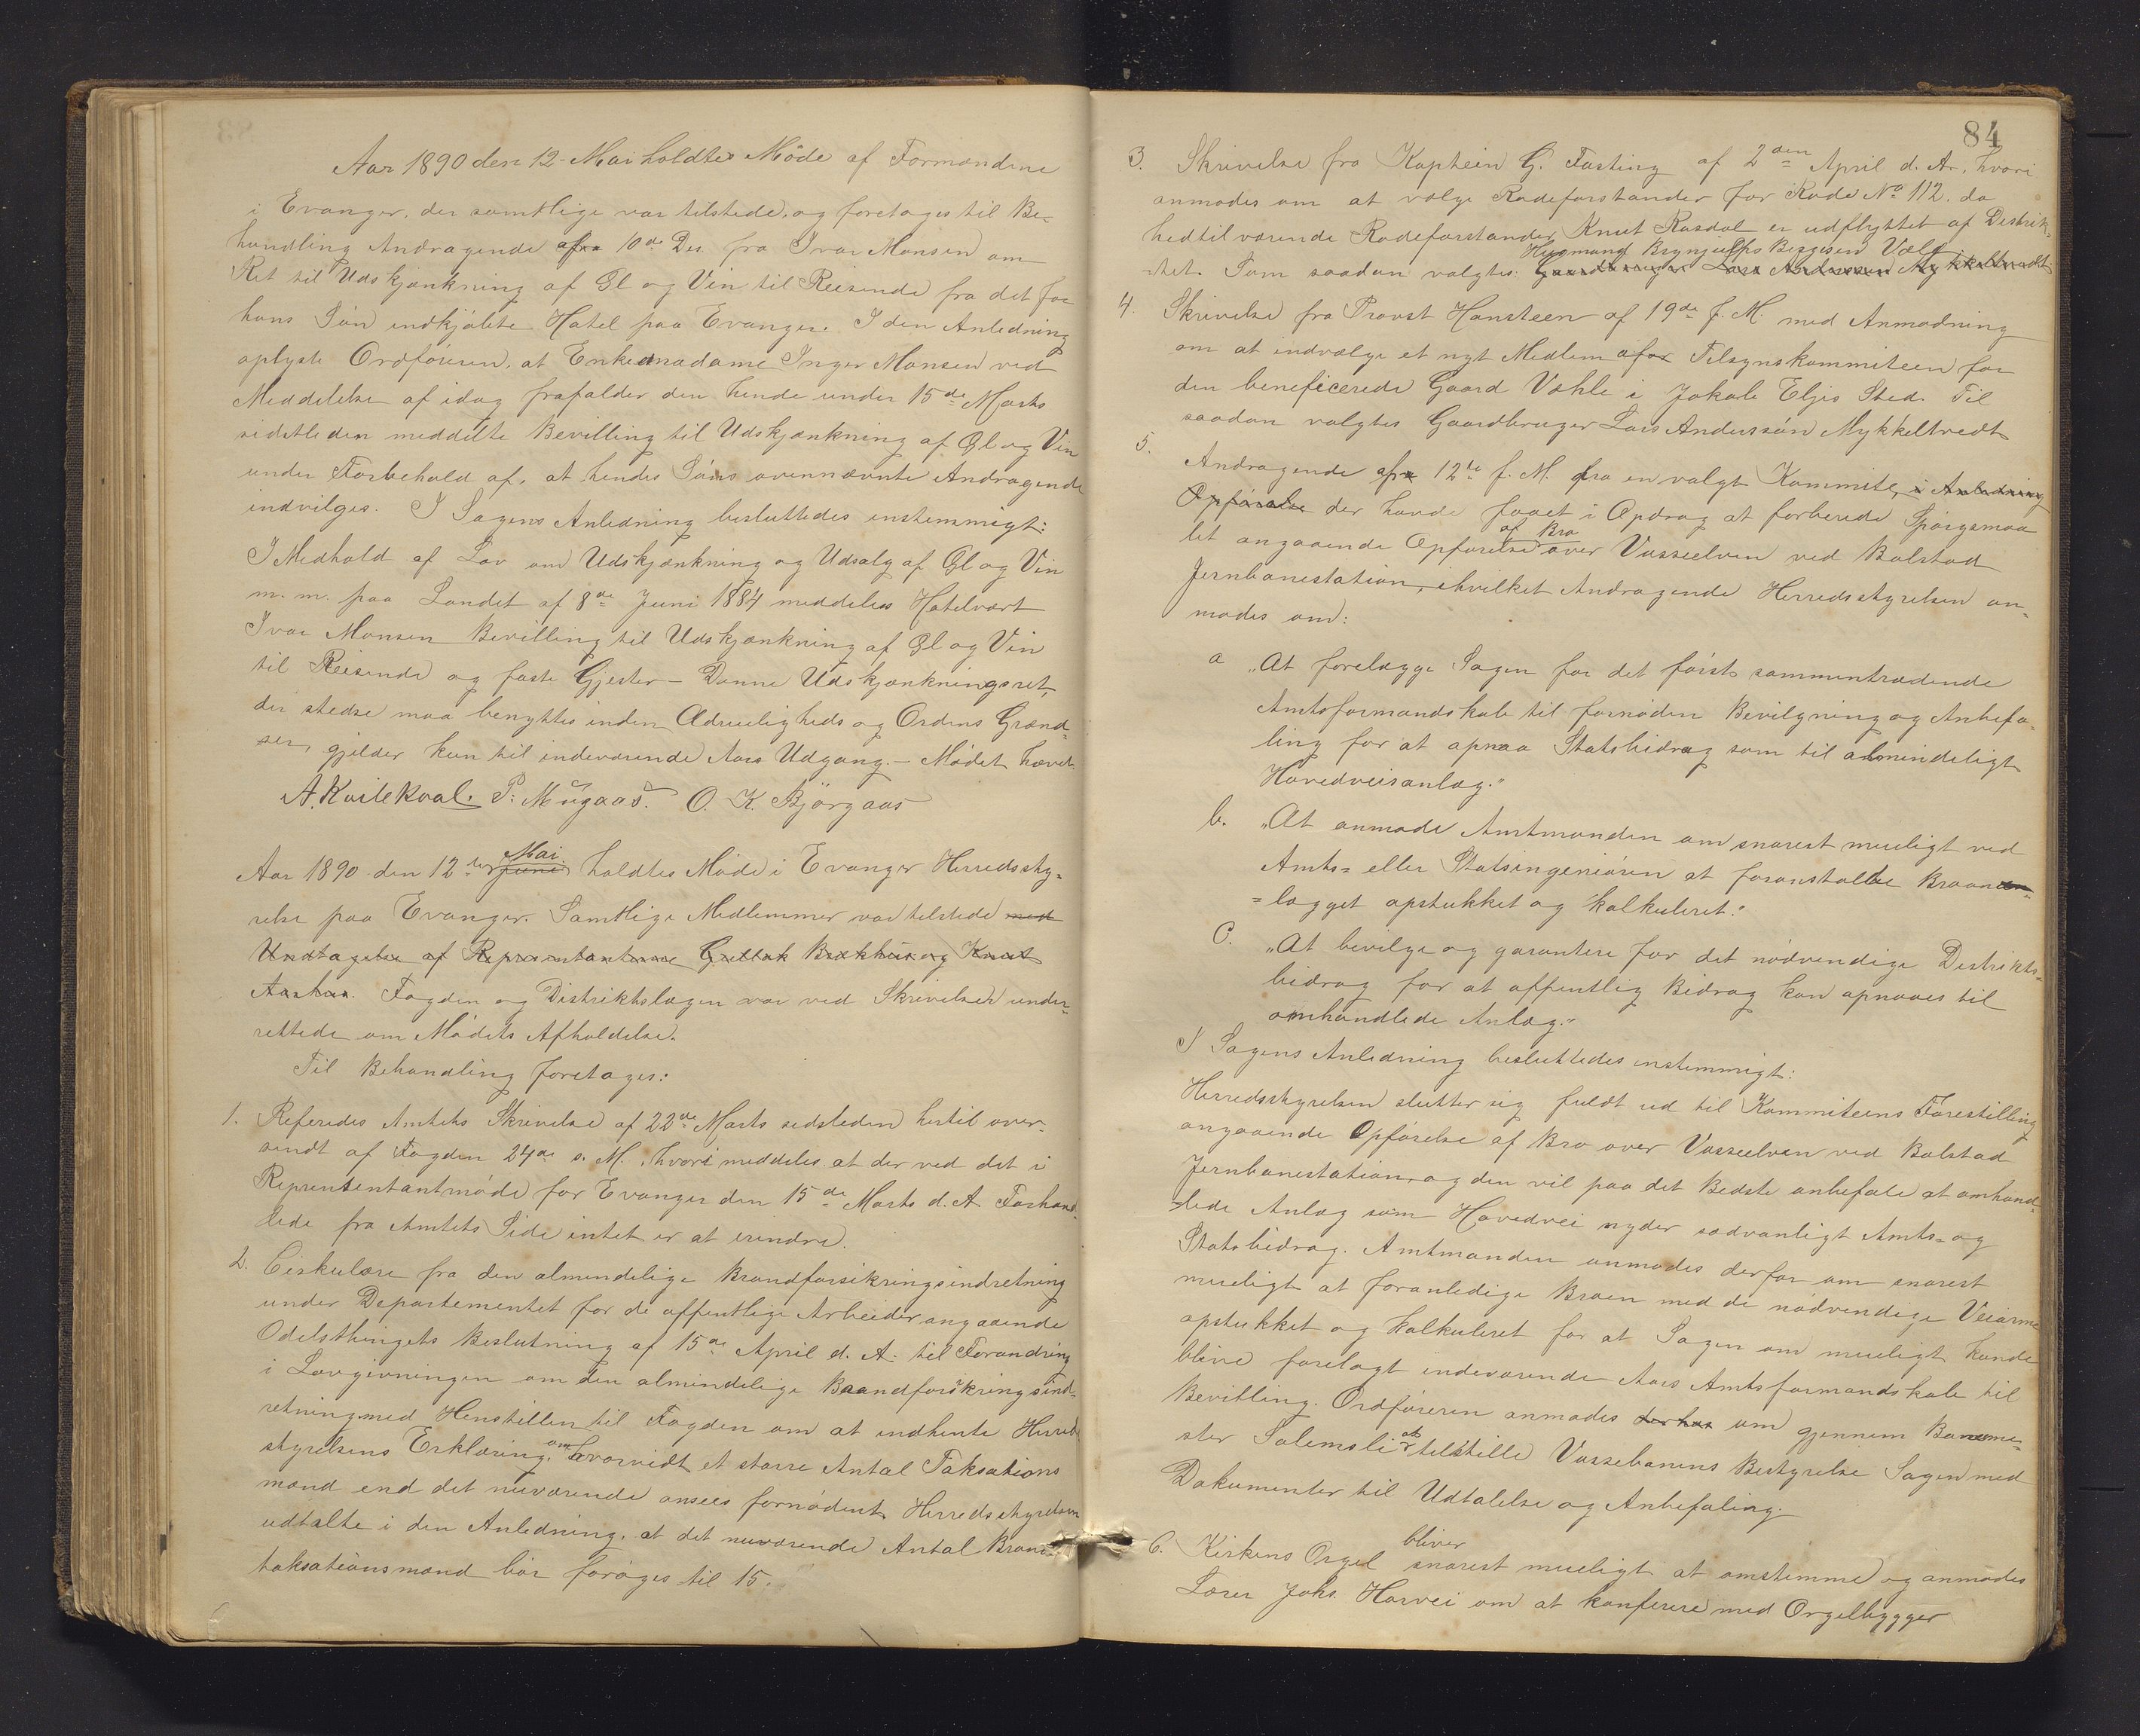 Aar 1890 den 12 Mai holdtes Möde af Formændene
i Evanger, der samtlige var tilstede, og foretages til Be-
handling Andragende af 10de Ds. fra Ivar Monsen om
Ret til Udskjænkning af Øl og Vin til Reisende fra det for
hans Sön indkjöbte Hotel paa Evanger. I den Anledning
oplyste Ordföreren, at Enkemadame Inger Monsen ved
Meddelelse af idag frafalder den hende under 15de Marts
sidstleden meddelte Bevilling til Udskjænkning af Øl og Vin
under Forbehold af, at hendes Söns ovennævnte Andragende
indvilges. I Sagens Anledning besluttedes enstemmigt:
I Medhold af Lov om Udskjænkning og Udsalg af Øl og Vin
m. m. paa Landet af 8de Juni 1884 meddeles Hotelvært
Ivar Monsen Bevilling til Udskjænkning af Øl og Vin
til Reisende og faste Gjester – Denne Udskjænkningsret,
der stedse maa benyttes inden Ædrueligheds og Ordens Grænd-
ser, gjelder kun til indeværende Aars Udgang. – Mödet hævet.
A. Kvilekval. P. Mugaas. O. K. Bjørgaas
Aar 1890 den 12te Juni Mai holdtes Möde i Evanger Herredssty-
relse paa Evanger. Samtlige Medlemmer var tilstede med
Undtagelse af Repræsentanterne Gullak Brækhus og Knut
Aarhus. Fogden og Distriktslægen var ved Skrivelser under-
rettede om Mödets Afholdelse.
Til Behandling foretages:
1. Referedes Amtets Skrivelse af 22de Marts sidstleden hertil over-
sendt af Fogden 24de s. M., hvori meddeles at der ved det i
Reprensentantmöde for Evanger den 15de Marts d. A. Forhand-
lede fra Amtets Side intet er at erindre.
2. Cirkulære fra den almindelige Brandforsikringsindretning
under Departementet for de offentlige Arbeider angaaende
Odelsthingets Beslutning af 15de April d. A. til Forandring
i Lovgivningen om den almindelige Brandforsikringsind-
retning med Henstillen til Fogden om at indhente Herreds
styrelsens Erklæring, om hvorvidt et större Antal Taksations
mænd end det nuværende ansees fornödent. Herredsstyrelsen
udtalte i den Anledning, at det nuværende Antal Brand-
taksationsmænd bör foröges til 15.
84
3. Skrivelse fra Kaptein G. Fasting af 2den April d. Ar., hvori
anmodes om at vælge Rodeforstander for Rode No 112. da
hedtilværende Rodeforstander Knut Rasdal er udflyttet af Distrik-
Husmand Brynjulf Birgesen Væle
-tet. Som saadan valgtes: Gaardbruger Lars Andersen Mykkeltvedt
4. Skrivelse fra Provst Hansteen af 19de f. M. med Anmodning
om at indvælge et nyt Medlem af Tilsynskommiteen for
den beneficerede Gaard Væhle i Jakob Eljes Sted. Til
saadan valgtes Gaardbruger Lars Anderssön Mykkeltvedt
5. Andragende af 12te f. M. fra en valgt Kommite, i Anledning
Opförelse der havde faaet i Opdrag at forberede Spörgsmaa
let angaaende Opförelse af Bro over Vosseelven ved Bolstad
Jernbanestation, i hvilket Andragende Herredsstyrelsen an-
modes om:
a „At forelægge Sagen for det först sammentrædende
Amtsformandskab til fornöden Bevilgning og Anbefa-
ling for at opnaa Statsbidrag som til almindeligt
Hovedveisanlæg."
b. „At anmode Amtmanden om snarest mueligt ved
Amts- eller Statsingeniören at foranstalte Broan-
-lægget opstukket og kalkuleret."
C. „At bevilge og garantere for det nödvendige Distrikts-
bidrag for at offentlig Bidrag kan opnaaes til
omhandlede Anlæg."
I Sagens Anledning besluttedes enstemmigt:
Herredsstyrelsen slutter sig fuldt ud til Kommiteens Forestilling
angaaende Opförelse af Bro over Vosseelven ved Bolstad
Jernbanestation, og den vil paa det Bedste anbefale at omhand-
-lede Anlæg som Hovedvei nyder sædvanligt Amts- og
Statsbidrag. Amtmanden anmodes derfor om snarest
mueligt at foranledige Broen med de nödvendige Veiarme
opstukket og kalkuleret for at Sagen om mueligt kunde
blive forelagt indeværende Aars Amtsformandskab til
Bevilling. Ordföreren anmodes derhos om gjennem Baneme-
ster Salemsli at tilstille Vossebanens Bestyrelse Sagen med
Dokumenter til Udtalelse og Anbefaling.
6. Kirkens Orgel bliver snarest mueligt at omstemme og anmodes
Lærer Johs. Horvei om at konferere med Orgelbygger